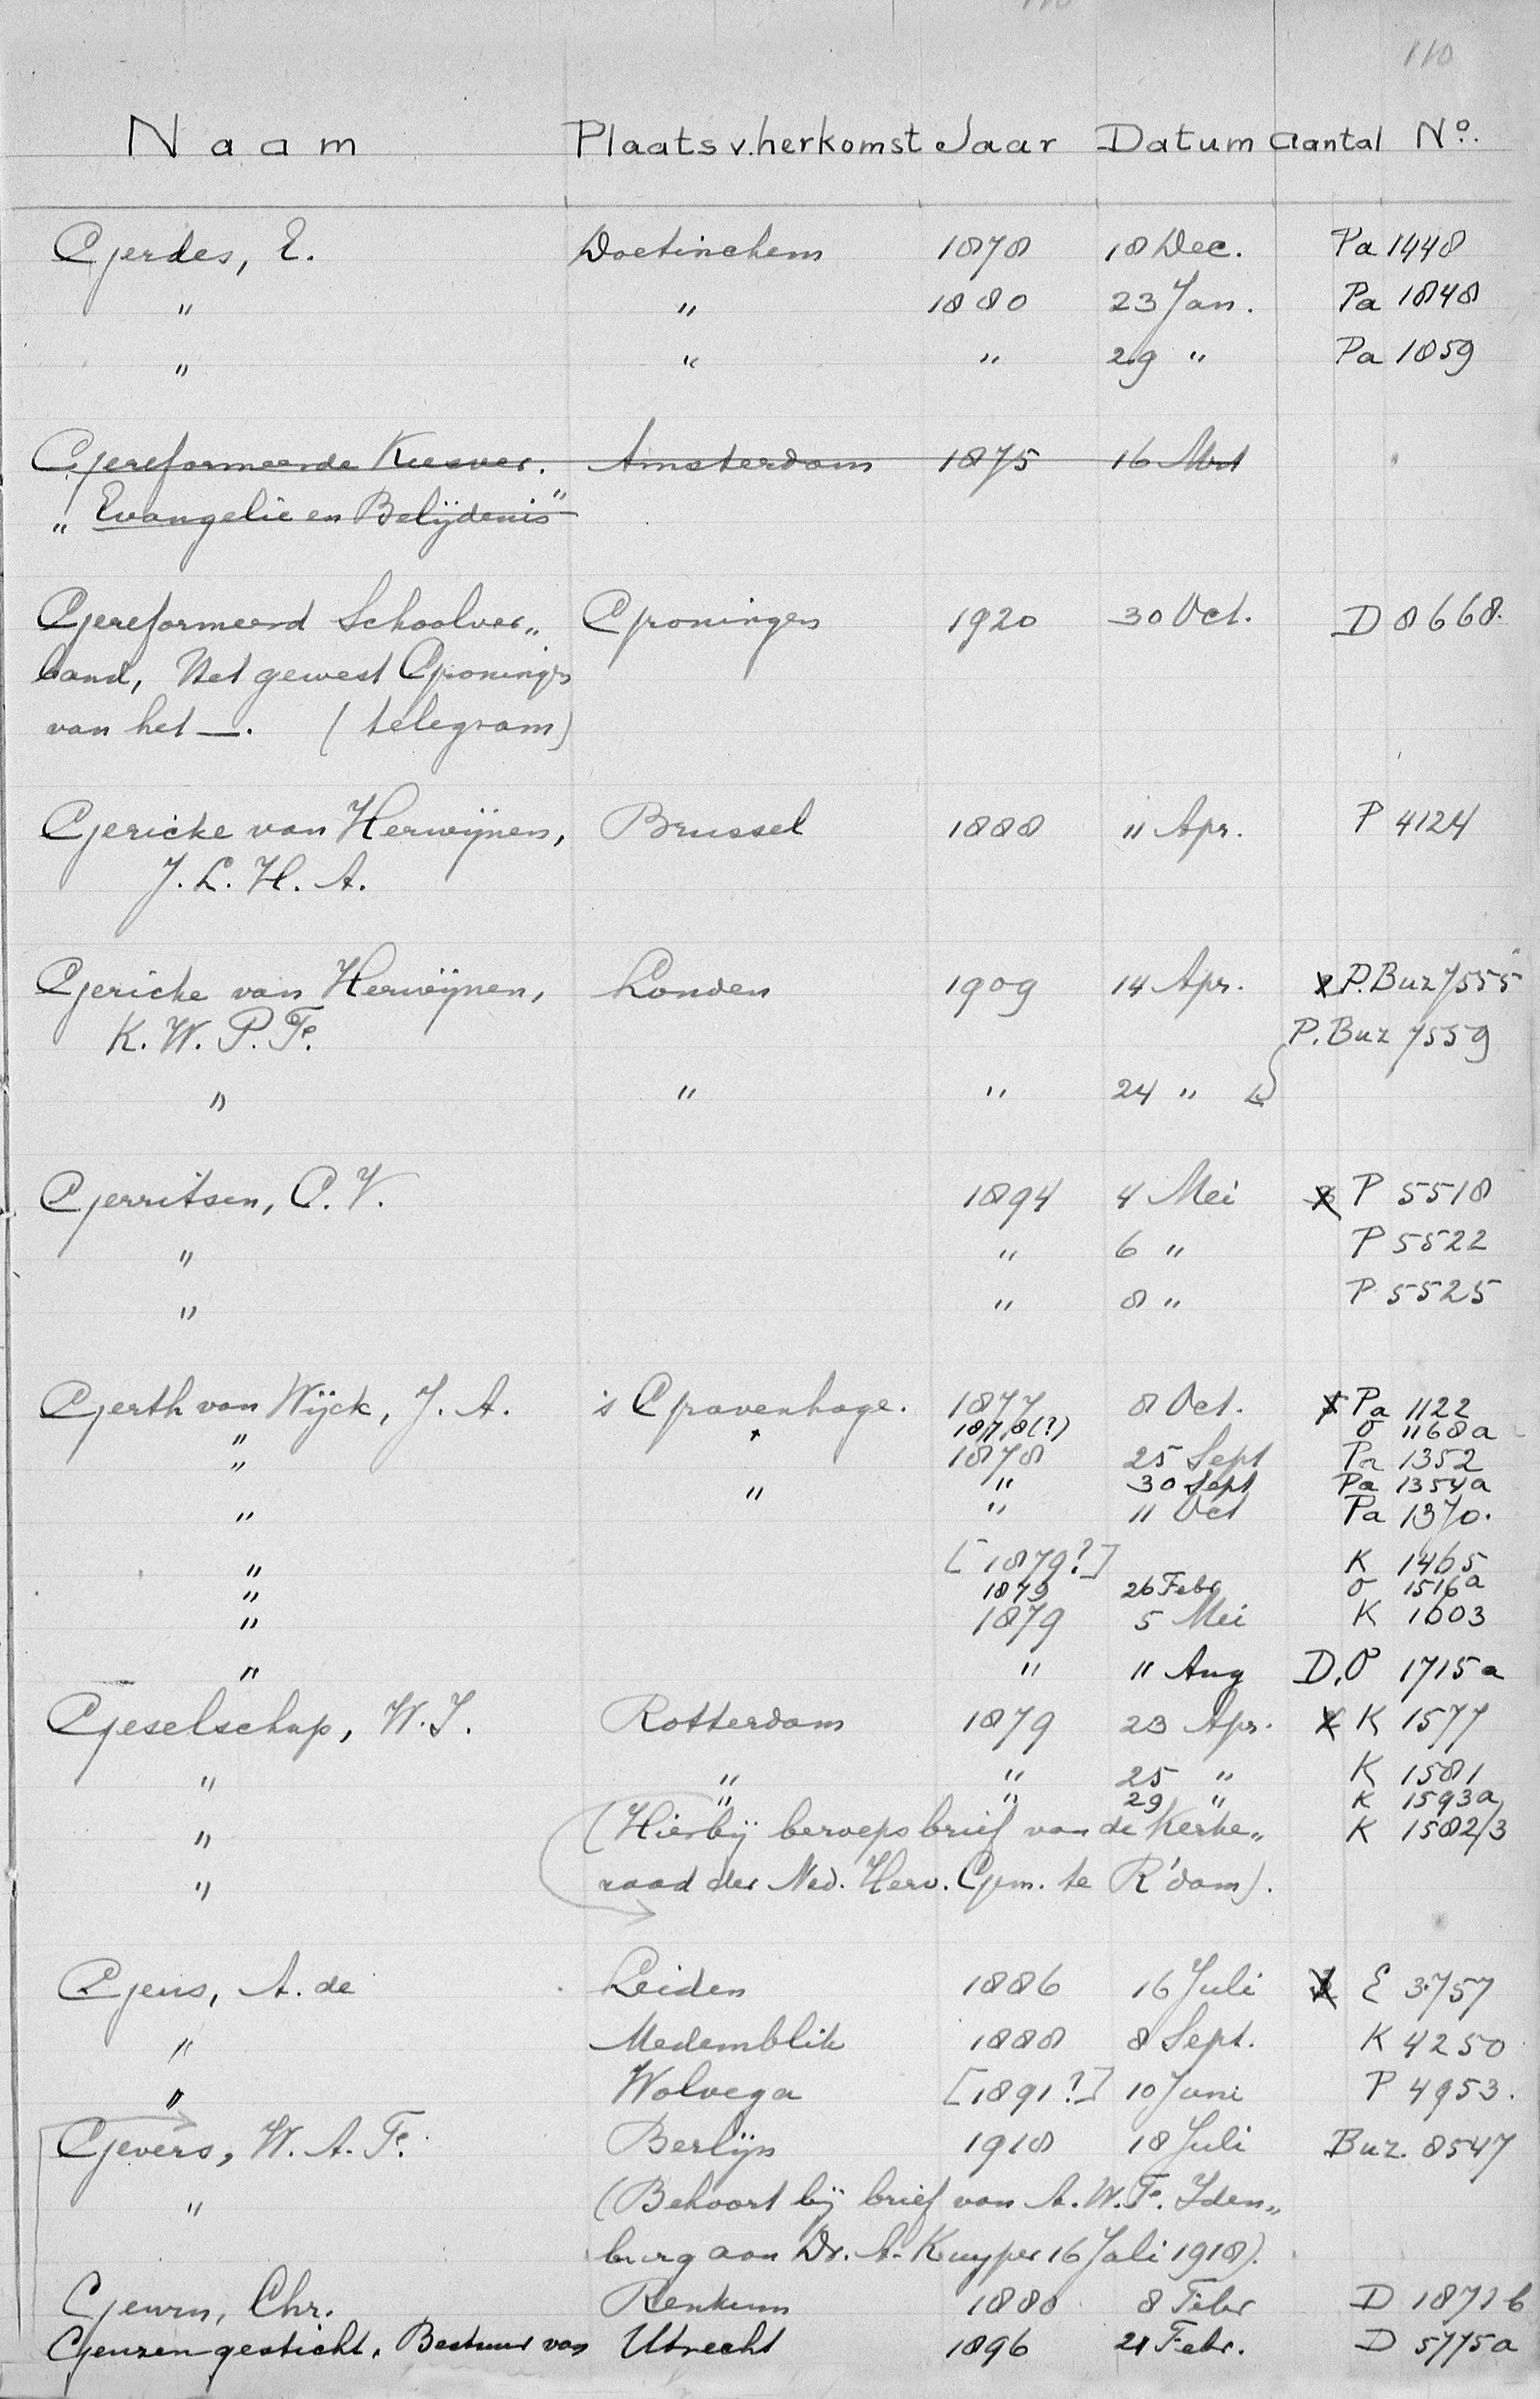 110
Naam Plaats v. herkomst Jaar Datum Aantal No.
Gerdes, E. Doetinchem 1878 18 Dec. Pa 1448
" " 1880 23 Jan. Pa 1848
" " " 29 " Pa 1859
Gereformeerde Kiesver. Amsterdam 1875 16 Mrt
„Evangelie en Belijdenis"
Gereformeerd Schoolver„ Groningen 1920 30 Oct. D 8668.
band, Het gewest Groningen
van het —. (telegram)
Gericke van Herwijnen, Brussel 1888 11 Apr. P 4124
J. L. H. A.
Gericke van Herwijnen, Londen 1909 14 Apr. P. Buz 7555
K. W. P. F. P. Buz 7559
" " " 24 "
Gerritsen, C. V. 1894 4 Mei P 5518
" " 6 " P 5522
" " 8 " P 5525
Gerth van Wijck, J. A. 's Gravenhage. 1877 8 Oct. Pa 1122
" " 1878(?) O 1168a
" 1878 25 Sept Pa 1352
" " 30 Sept Pa 1354a
" " 11 Oct Pa 1370.
" [1879?] K 1465
" 1879 26 Febr O 1516a
" 1879 5 Mei K 1603
" " 11 Aug D.O 1715a
Geselschap, W. J. Rotterdam 1879 23 Apr. K 1577
" " " 25 " K 1581
" " 29 " K 1593a
" (Hierbij beroepsbrief van de Kerke„ K 1582/3
" raad der Ned. Herv. Gem. te R'dam).
Geus, A. de Leiden 1886 16 Juli E 3757
" Medemblik 1888 8 Sept. K 4250
" Wolvega [1891?] 10 Juni P 4953.
Gevers, W. A. F. Berlijn 1918 18 Juli Buz. 8547
" (Behoort bij brief van A. W. F. Iden„
burg aan Dr. A. Kuyper 16 Juli 1918).
Geurn, Chr. Renkum 1880 8 Febr D 1871b
Geuzengesticht, Bestuur van Utrecht 1896 21 Febr. D 5775a